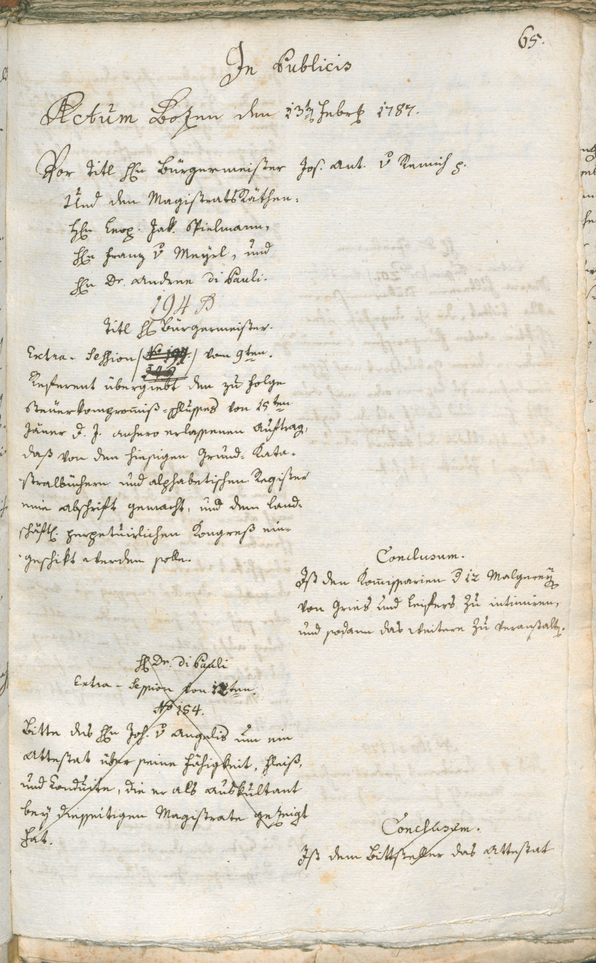 65.
In Publicis
Actum Bozen den 13ten Febr. 1787.
Vor Titl Hn Bürgermeister Jos. Ant. v Remich p.
Und den Magistrats Räthen,
Hn Leop. Jak. Spielmann,
Hn Franz v Mayrl, und
Hn Dr. Andene di Pauli.
194
Titl Hr Bürgermeister.
Extra-Session von 9ten.
Referent übergiebt den zu folge
Steuerkompromiß-Schlusses von 15ten
Jäner d. J. anhero erlassenen Auftrag,
daß von den hiesigen Grund-Kata-
stralbüchern und alphabetischen Register
eine Abschrift gemacht, und dem Land-
schäftl. perpetuirlichen Kongreß ein-
geschikt werden solle.
Conclusum.
Ist den Kommissarien d 12 Malgreyen
von Gries und Leifers zu intimiren,
und sodann das weitere zu veranstalt.
Hr Dr. di Pauli
Extra-Session von 12ten.
No 154.
Bitte des Hn Joh. v Angelis um ein
Attestat über seine Fähigkeit, Fleiß,
und Conduite, die er als Auskultant
bey diesseitigen Magistrate gezeigt
hat.
Conclusum.
Ist dem Bittsteller das Attestat